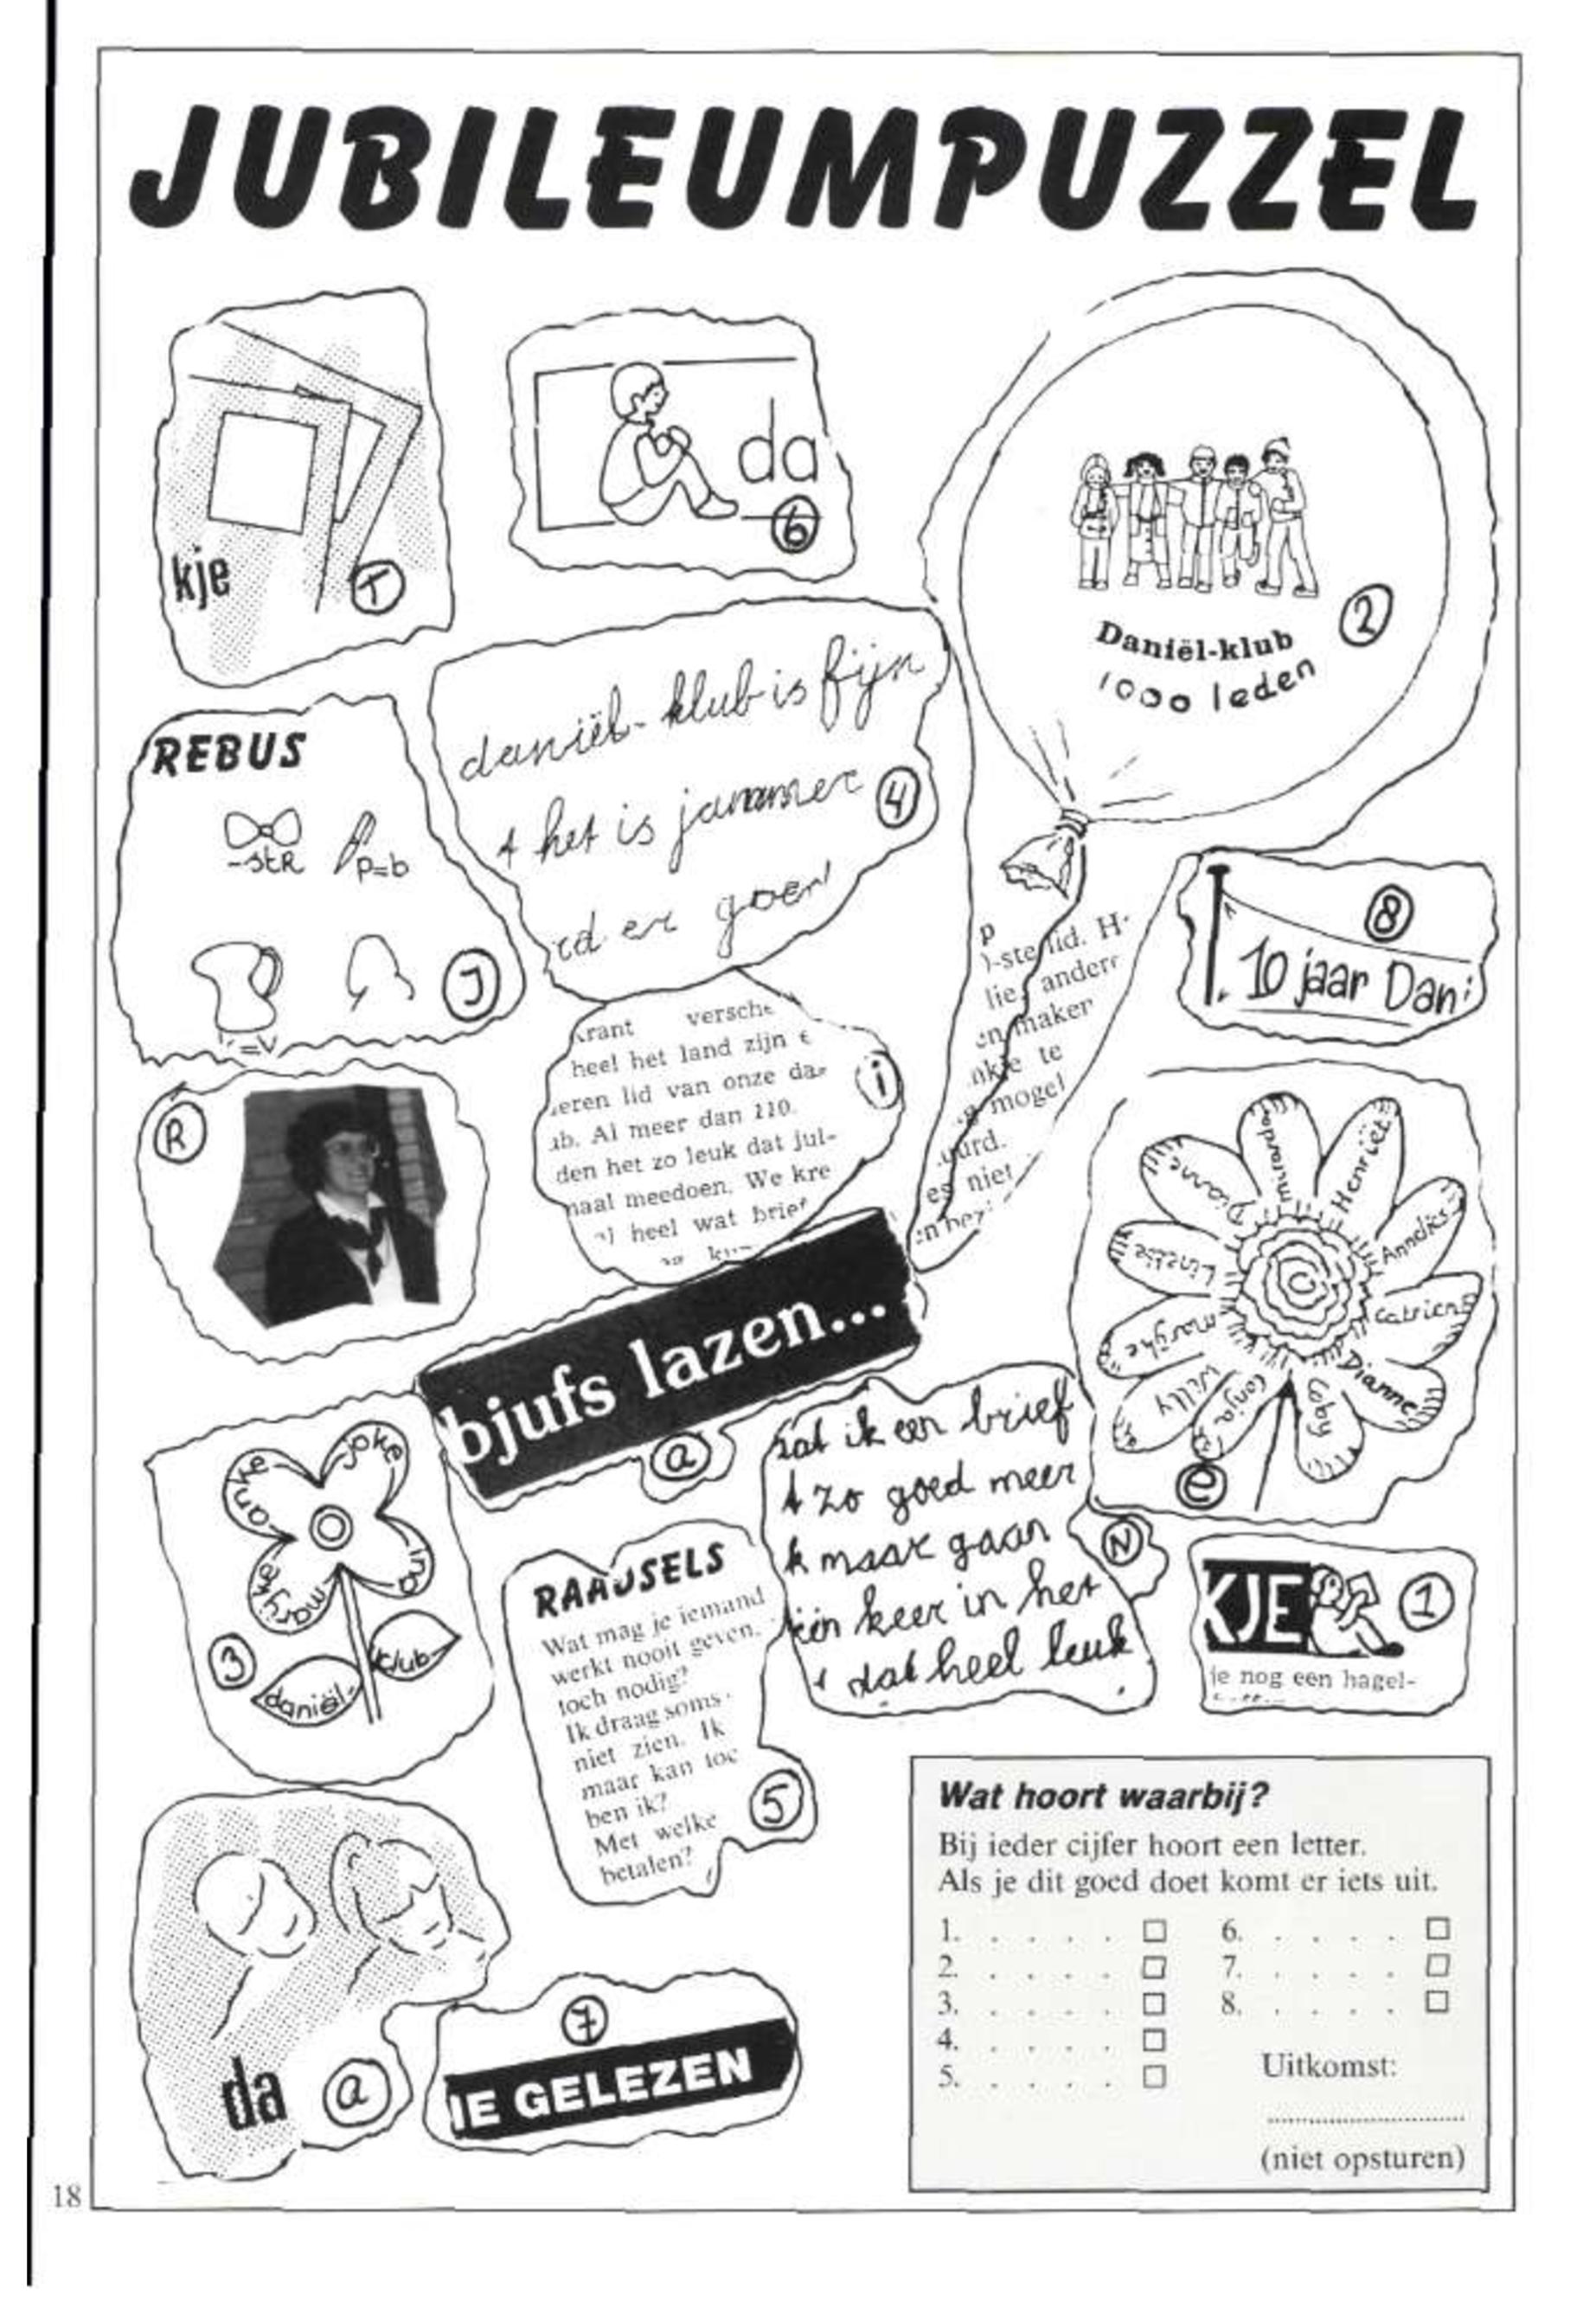 JUBILEUMPUZZEL
kje
T
da
6
Daniël-klub
1000 leden
2
daniël-klub is fijn
t het is jammer
4
er goen!
REBUS
-stR
p=b
=v
J
krant
heel het land zijn
eren lid van onze da-
ub. Al meer dan 110.
den het zo leuk dat jul-
maal meedoen. We kre
heel wat brief
i
p
)-ste lid. H
lie, andere
en maker
nkje te
g mogel
uurd.
es niet
8
10 jaar Dani
R
Dianne
miranda
Henriët
Annelies
Catrien
Dianne
Coby
Conja
Willy
marijke
Linette
e
bjufs lazen...
a
kuoke
joke
ina
marijke
daniël-
klub
3
dat ik een brief
t zo goed meer
k maar gaan
één keer in het
t dat heel leuk
N
RAADSELS
Wat mag je iemand
werkt nooit geven,
toch nodig?
Ik draag soms
niet zien. Ik
maar kan toc
ben ik?
Met welke
betalen?
5
KJE
1
je nog een hagel-
da
a
7
IE GELEZEN
Wat hoort waarbij?
Bij ieder cijfer hoort een letter.
Als je dit goed doet komt er iets uit.
1. . . . . . □ 6. . . . . □
2. . . . . . □ 7. . . . . □
3. . . . . . □ 8. . . . . □
4. . . . . . □
5. . . . . . □
Uitkomst:
..............................
(niet opsturen)
18